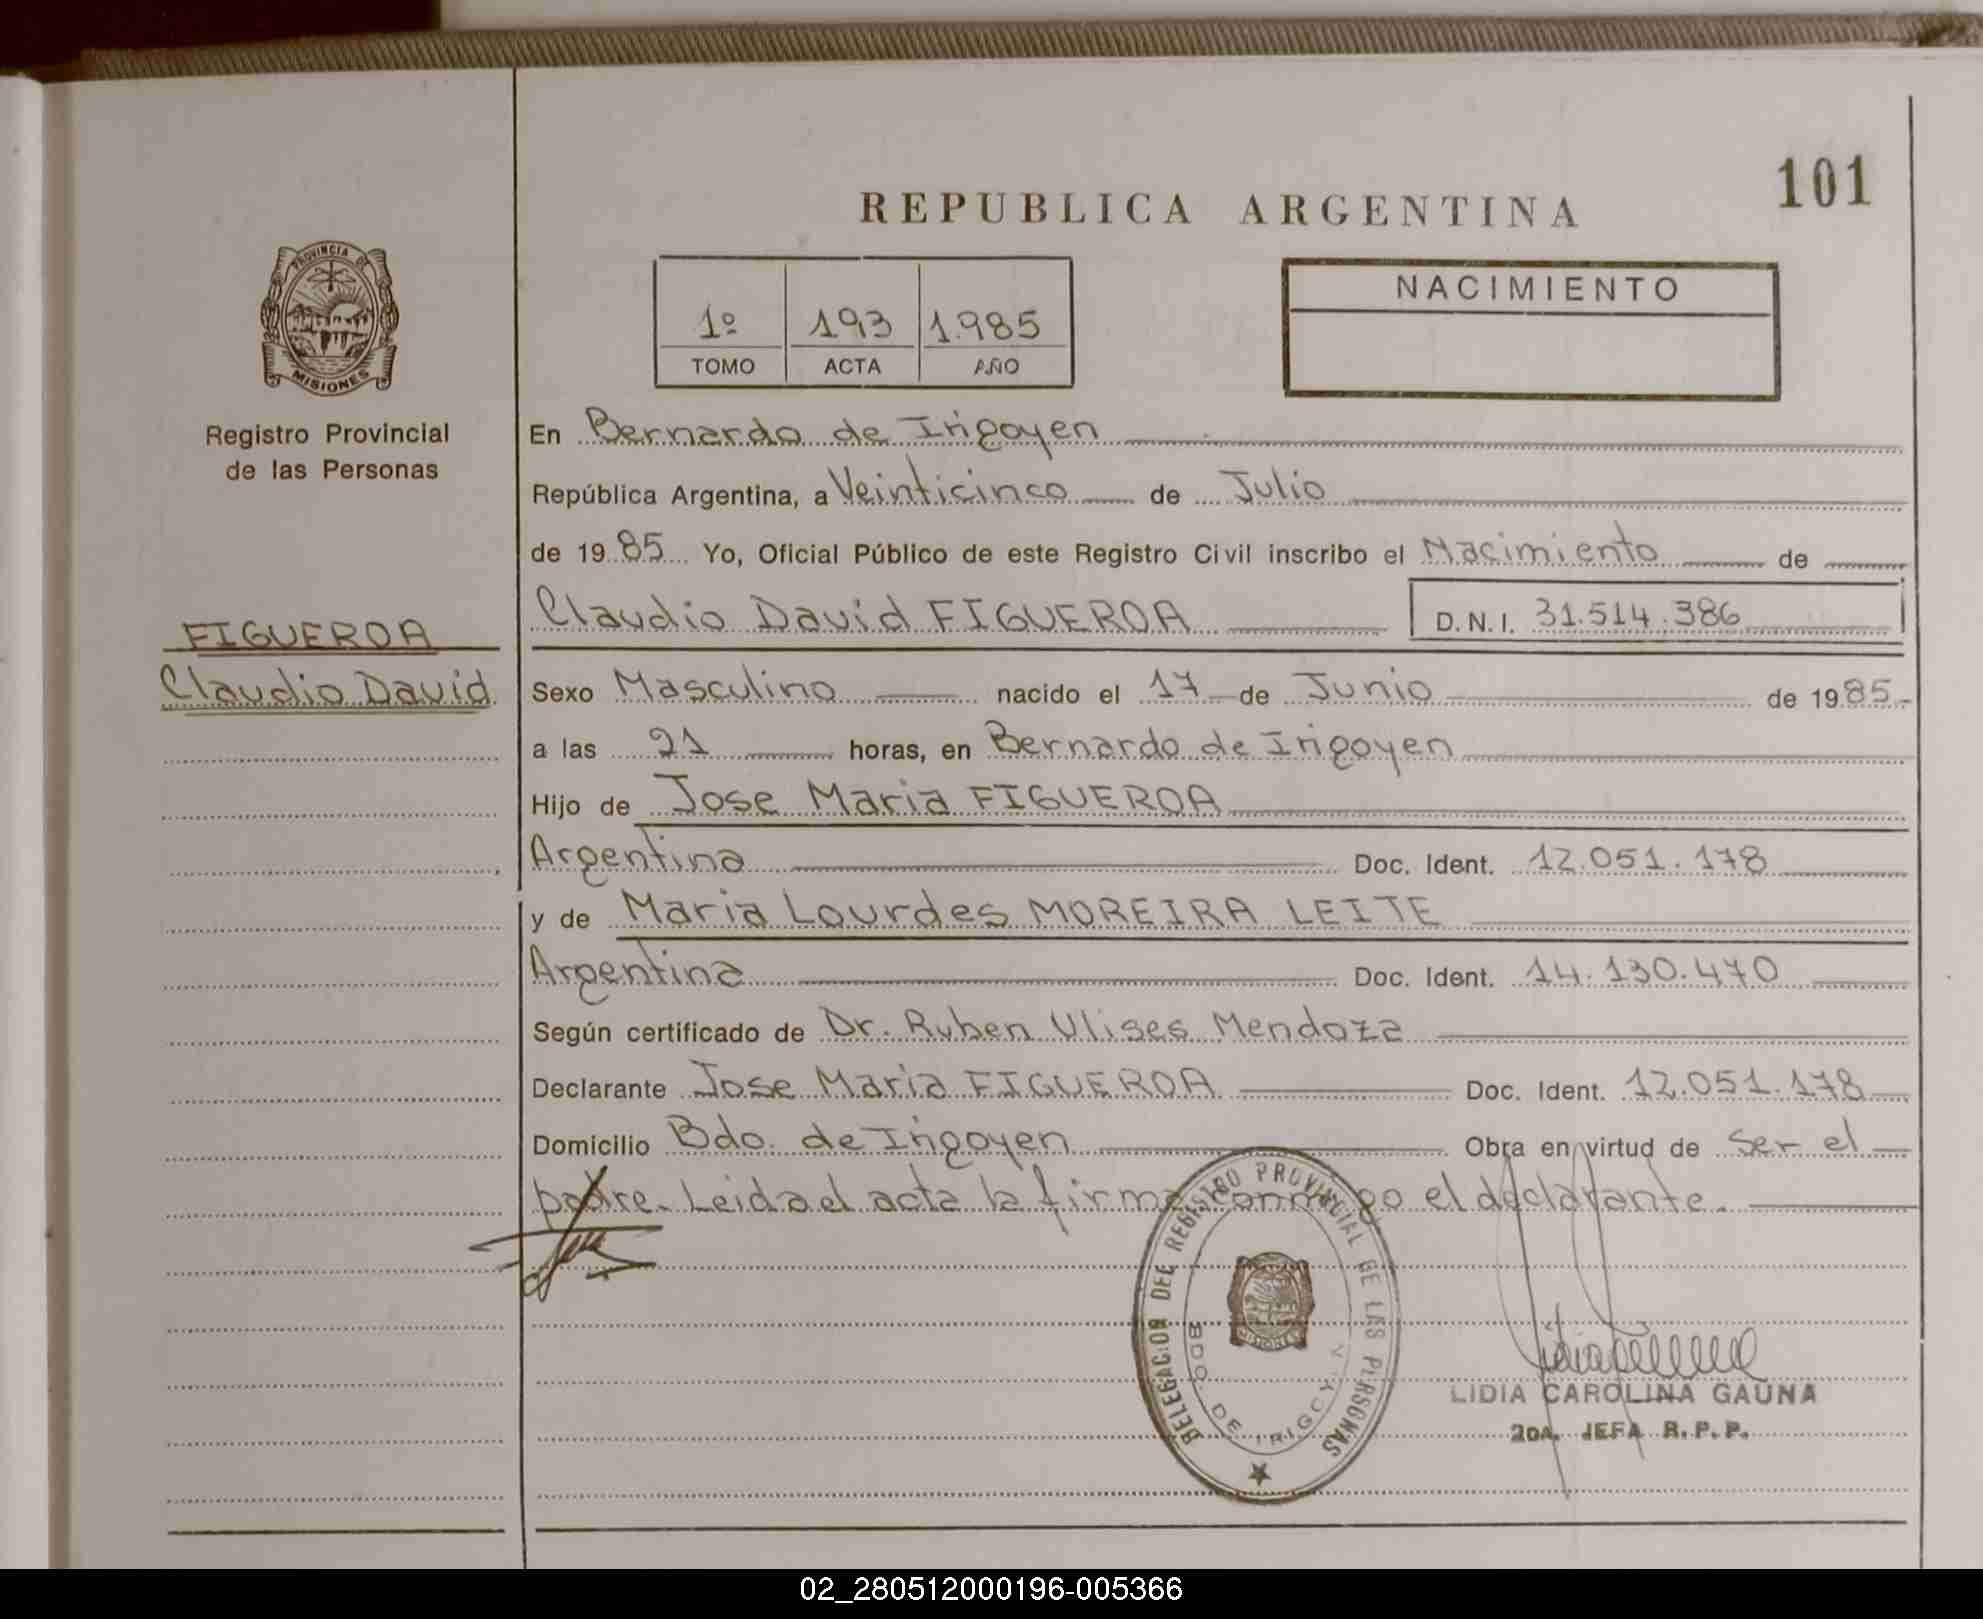 101
REPUBLICA ARGENTINA
PROVINCIA DE
MISIONES
Registro Provincial
de las Personas
1º 193 1.985
TOMO ACTA AÑO
NACIMIENTO
En Bernardo de Irigoyen
República Argentina, a Veinticinco de Julio
de 1985 Yo, Oficial Público de este Registro Civil inscribo el Nacimiento de
Claudio David FIGUEROA D.N.I. 31.514.386
FIGUEROA
Claudio David
Sexo Masculino nacido el 17 de Junio de 1985
a las 21 horas, en Bernardo de Irigoyen
Hijo de Jose Maria FIGUEROA
Argentina Doc. Ident. 12.051.178
y de Maria Lourdes MOREIRA LEITE
Argentina Doc. Ident. 14.130.470
Según certificado de Dr. Ruben Ulises Mendoza
Declarante Jose Maria FIGUEROA Doc. Ident. 12.051.178
Domicilio Bdo. de Irigoyen Obra en virtud de Ser el
padre. Leida el acta la firma conmigo el declarante.
DELEGACION DEL REGISTRO PROVINCIAL DE LAS PERSONAS
BDO. DE IRIGOYEN
MISIONES
LIDIA CAROLINA GAUNA
2DA. JEFA R.P.P.
02_280512000196-005366